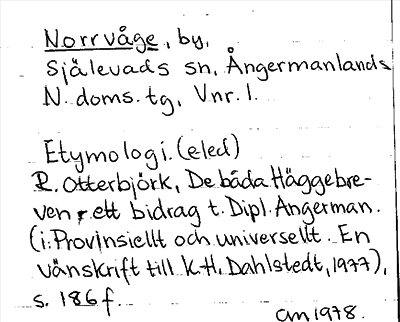 Norrvåge, by,
Själevads sn, Ångermanlands
N. doms. tg, Vnr. 1.
Etymologi. (eled)
R. Otterbjörk, De båda Häggebre-
ven, ett bidrag t. Dipl. Angerman.
(i: Provinsiellt och universellt. En
vänskrift till K.H. Dahlstedt, 1977),
s. 186 f.
am 1978.